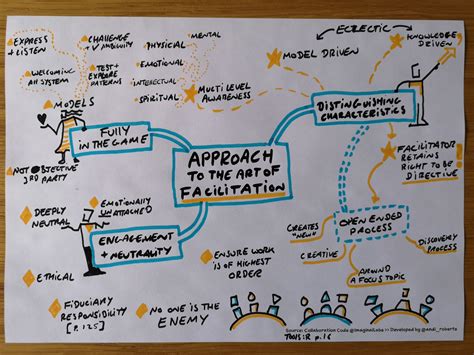 EXPRESS
+ LISTEN
CHALLENGE
+ V AMBIGUITY
WELCOMING
AN SYSTEM
TEST +
EXPLORE
PATTERNS
PHYSICAL
MENTAL
EMOTIONAL
INTELECTUAL
SPIRITUAL
MULTI LEVEL
AWARENESS
MODEL DRIVEN
ECLECTIC
KNOWLEDGE
DRIVEN
MODELS
FULLY
IN THE GAME
NOT OBJECTIVE
3RD PARTY
APPROACH
TO THE ART OF
FACILITATION
DISTINGUISHING
CHARACTERISTICS
FACILITATOR
RETAINS
RIGHT TO BE
DIRECTIVE
DEEPLY
NEUTRAL
EMOTIONALLY
UNATTACHED
ENGAGEMENT
+ NEUTRALITY
ETHICAL
FIDUCIARY
RESPONSIBILITY
[P. 125]
NO ONE IS THE
ENEMY
ENSURE WORK
IS OF HIGHEST
ORDER
OPEN ENDED
PROCESS
CREATES
"NEW"
CREATIVE
AROUND
A FOCUS TOPIC
DISCOVERY
PROCESS
Source: Collaboration Code @ImaginalLabs >> Developed by @andi_roberts
TOOLS:R p.16